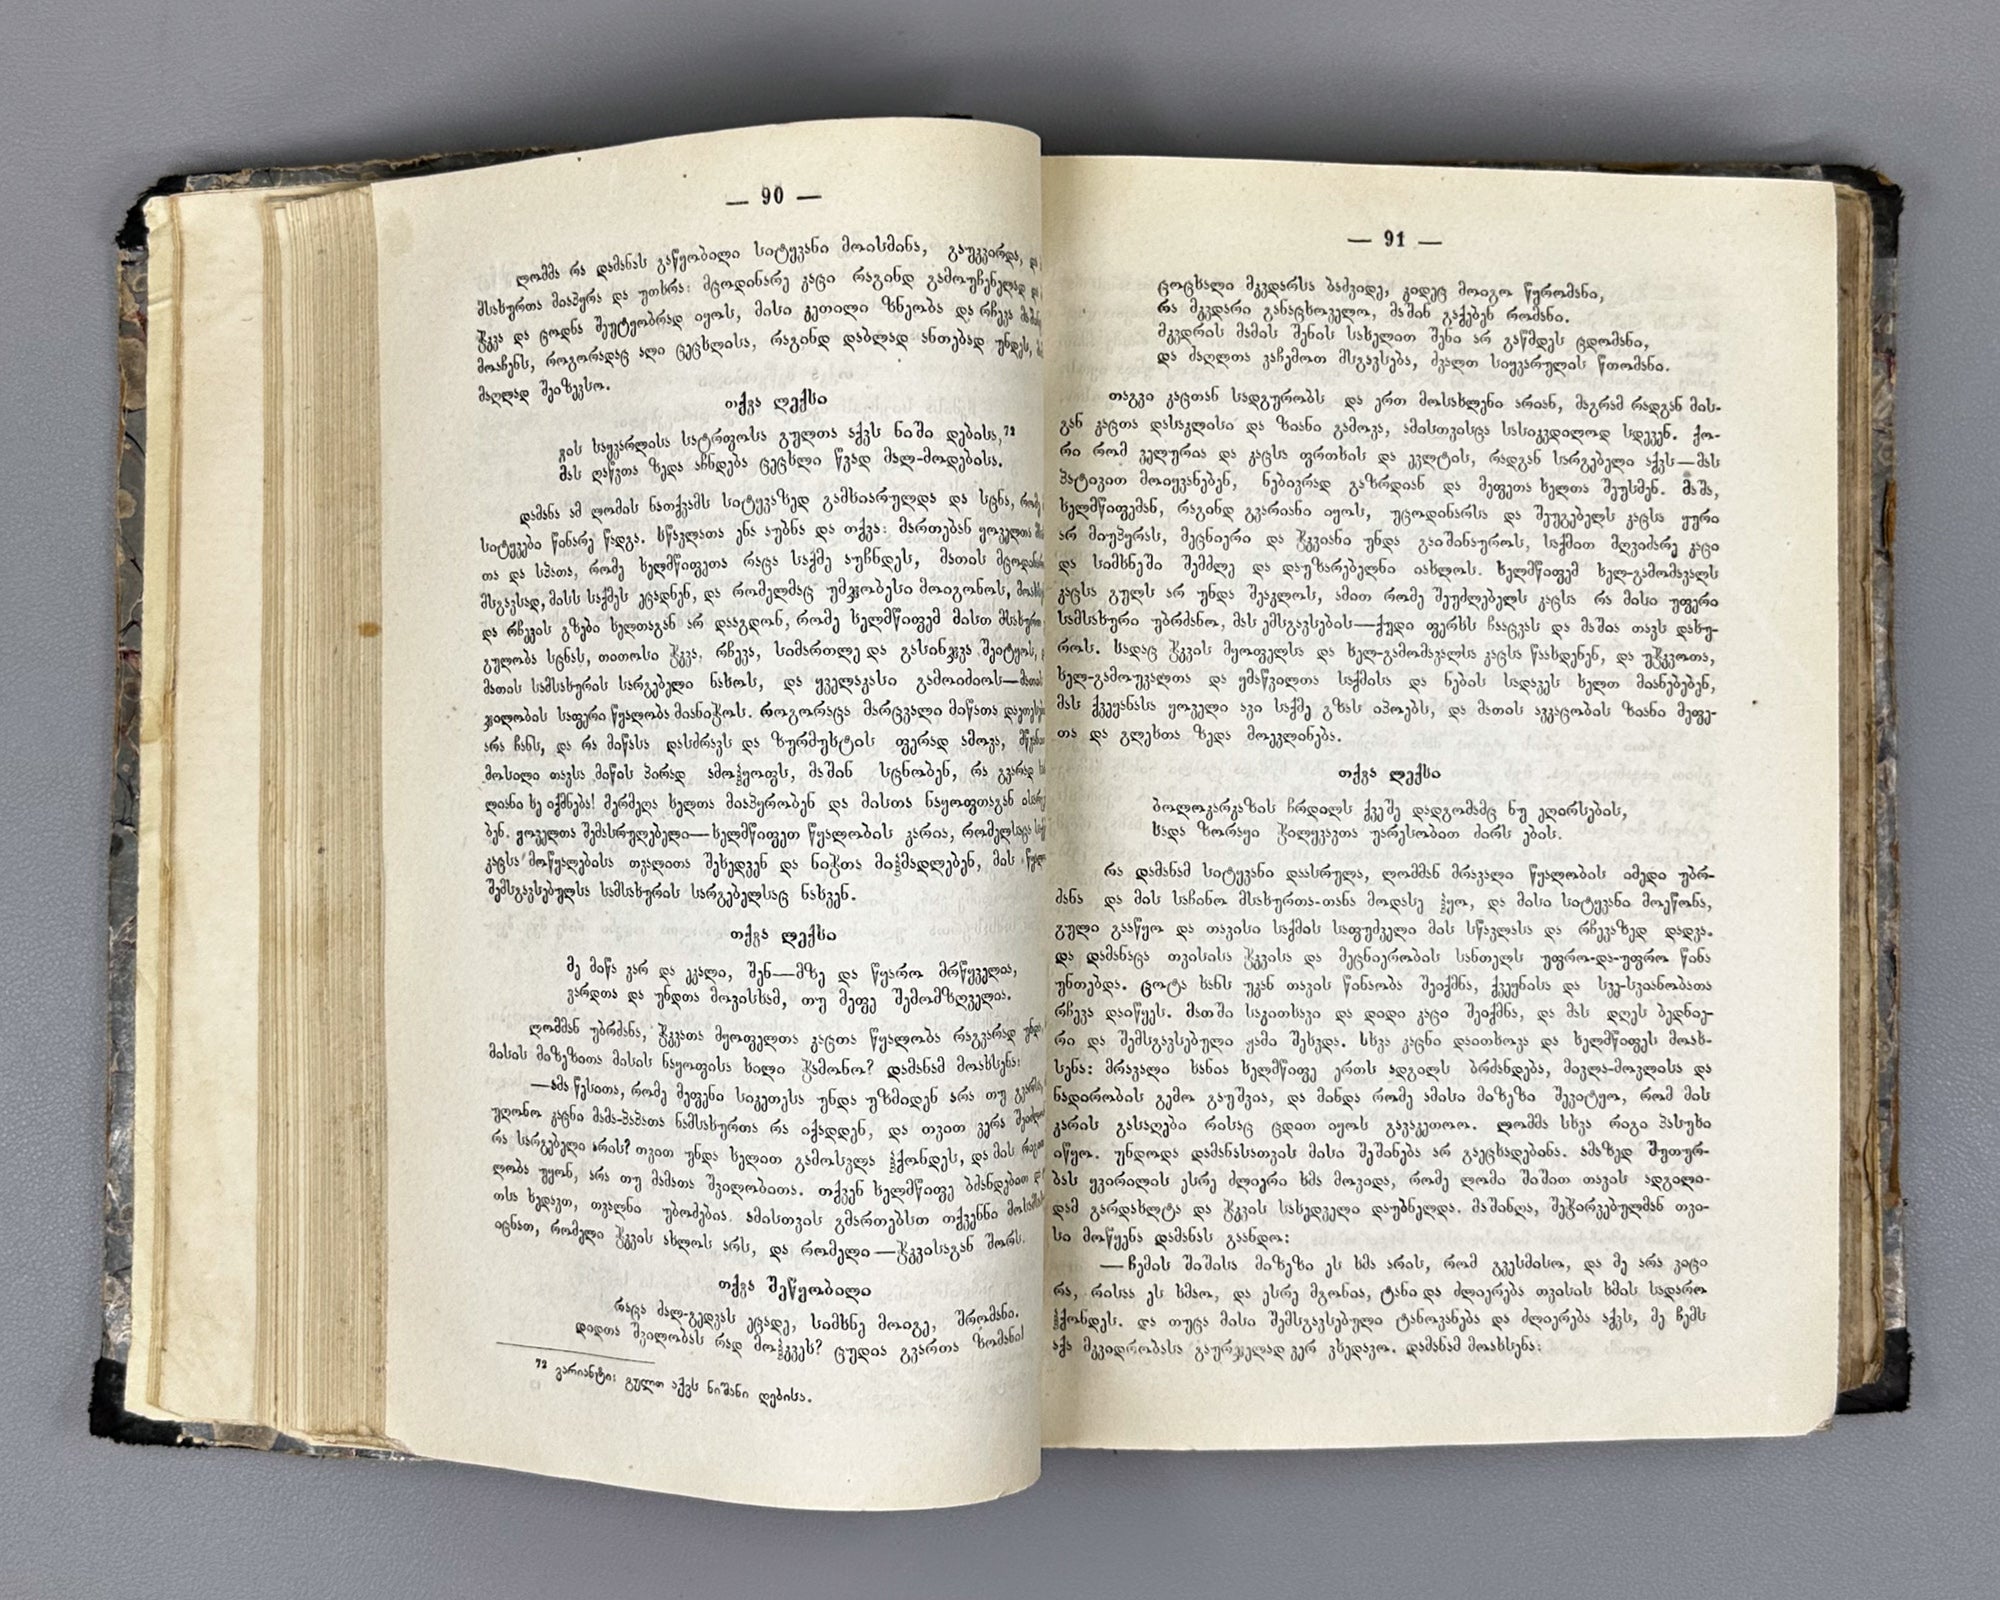 — 90 —
ლომმა რა დამანას გაწყობილი სიტყვანი მოისმინა, გაუკვირდა, და
მსახურთა მიაპყრა და უთხრა: მცოდინარე კაცი რაგინდ გამოუჩენელად
ჭკვა და ცოდნა შეუტყობრად იყოს, მისი კეთილი ზნეობა და რჩევა
მოაჩენს, როგორადაც ალი ცეცხლისა, რაგინდ დაბლად ანთებად უნდეს,
მაღლად შეიზევსო.
თქვა ლექსი
ვის საყვარლისა სატრფოსა გულთა აქვს ნიში დებისა,⁷²
მას ღაწვთა ზედა აჩნდება ცეცხლი წვად მალ-მოდებისა.
დამანა ამ ლომის ნათქვამს სიტყვაზედ გამხიარულდა და სცნა,
სიტყვები წინარე წადგა. სწავლათა ენა აუბნა და თქვა: მართებან ყოველთა
თა და სპათა, რომე ხელმწიფეთა რაცა საქმე აუჩნდეს, მათის
მსგავსად, მისს საქმეს ეცადნენ, და რომელმაც უმჯობესი მოიგონოს,
და რჩევის გზები ხელთაგან არ დააგდონ, რომე ხელმწიფემ მისთ
გულობა სცნას, თითოსი ჭკვა, რჩევა, სიმართლე და გასინჯვა შეიტყოს,
მათის სამსახურის სარგებელი ნახოს, და ყველაკასი გამოიძიოს—
ჯილობის საფერი წყალობა მიანიჭოს. როგორაცა მარცვალი მიწათა
არა ჩანს, და რა მიწასა დასძრავს და ზურმუხტის ფერად ამოვა,
მოსილი თავსა მიწის პირად ამოჰყოფს, მაშინ სცნობენ, რა გვარად
ლიანი ხე იქმნება! მერმეღა ხელთა მიაპყრობენ და მისთა ნაყოფთაგან
ბენ. ყოველთა შემასრულებელი—ხელმწიფეთ წყალობის კარია, რომელსაცა
კაცსა მოწყალებისა თვალითა შეხედვენ და ნიჭთა მიჰმადლებენ, მის
შემსგავსებულსა სამსახურის სარგებელსაც ნახვენ.
თქვა ლექსი
მე მიწა ვარ და ეკალი, შენ—მზე და წყარო მრწყველია,
ვარდთა და უნდთა მოვისხამ, თუ მეფე შემომზღველია.
ლომმან უბრძანა, ჭკვათა მყოფელთა კაცთა წყალობა რაგვარად
მისის მიზეზითა მისის ნაყოფისა ხილი ჭამონო? დამანამ მოახსენა:
—ამა წესითა, რომე მეფენი სიკეთესა უნდა უზმიდენ არა თუ
უღონო კაცნი მამა-პაპათა ნამსახურთა რა იქადდენ, და თვით ვერა
რა სარგებელი არის? თვით უნდა ხელით გამოსვლა ჰქონდეს, და მის
ლობა უყონ, არა თუ მამათა შვილობითა. თქვენ ხელმწიფე ბძანდებით
თსა ხედავთ, თვალნი უბომებია. ამისთვის გმართებსთ თქვენნი
იცნათ, რომელი ჭკვის ახლოს არს, და რომელი—ჭკვისაგან შორს.
თქვა შეწყობილი
რაცა ძალ-გედვას ეცადე, სიმხნე მოიგე, შრომანი.
დიდთა შვილობას რად მოჰკვეს? ცუდია გვართა ზომანი
⁷² ვარიანტი: გულთ აქვს ნიშანი დებისა.
— 91 —
ცოცხალი მკვდარსა ბაძვიდე, კიდეც მოიგო წურომანი,
რა მკვდარი განაცხოველო, მაშინ გაქებენ რომანი.
მკვდრის მამის შენის სახელით შენი არ გაწმდეს ცდომანი,
და ძაღლთა კაჩემოთ მსგავსება, ძვალთ სიყვარულის წთომანი.
თაგვი კაცთან სადგურობს და ერთ მოსახლენი არიან, მაგრამ რადგან მის-
გან კაცთა დასაკლისი და ზიანი გამოვა, ამისთვისცა სასიკვდილოდ სდევენ. ქო-
რი რომ ველურია და კაცსა ფრთხის და ევლტის, რადგან სარგებელი აქვს—მას
პატივით მოიყვანებენ, ნებივრად გაზრდიან და მეფეთა ხელთა შეუსმენ. მაშა,
ხელმწიფემან, რაგინდ გვარიანი იყოს, უცოდინარსა და შეუგებელს კაცსა ყური
არ მიუპყრას, მეცნიერი და ჭკვიანი უნდა გაიშინაუროს, საქმით მღვიძარე კაცი
და სიმხნეში შემძლე და დაუზარებელნი იახლოს. ხელმწიფემ ხელ-გამომავალს
კაცსა გულს არ უნდა შეაკლოს, ამით რომე შეუძლებელს კაცსა რა მისი უფერი
სამსახური უბრძანო, მას ემსგავსების—ქუდი ფერხს ჩააცვას და მაშია თავს დახუ-
როს. სადაც ჭკვის მყოფელსა და ხელ-გამომავალსა კაცსა წაახდენენ, და უჭკვოთა,
ხელ-გამოუვალთა და ყმაწვილთა საქმისა და ნების სადავეს ხელთ მიანებებენ,
მას ქვეყანასა ყოველი ავი საქმე გზას იპოებს, და მათის ავკაცობის ზიანი მეფე-
თა და გლეხთა ზედა მოევლინება.
თქვა ლექსი
ბოლოკარკაზის ჩრდილს ქვეშე დადგომამც ნუ ეღირსების,
სადა ზორაყი ჭილყვავთა უარესობით ძირს ების.
რა დამანამ სიტყვანი დაასრულა, ლომმან მრავალი წყალობის იმედი უბრ-
ძანა და მის საჩინო მსახურთა-თანა მოდასე ჰყო, და მისი სიტყვანი მოეწონა,
გული გააწყო და თავისი საქმის საფუძველი მის სწავლასა და რჩევაზედ დადვა.
და დამანაცა თვისისა ჭკვისა და მეცნიერობის სანთელს უფრო-და-უფრო წინა
უნთებდა. ცოტა ხანს უკან თავის წინაობა შეიქმნა, ქვეყნისა და სვე-სვიანობათა
რჩევა დაიწყეს. მათში საკითხავი და დიდი კაცი შეიქმნა, და მას დღეს ბედნიე-
რი და შემსგავსებული ჟამი შეხვდა. სხვა კაცნი დაითხოვა და ხელმწიფეს მოახ-
სენა: მრავალი ხანია ხელმწიფე ერთს ადგილს ბრძანდება, მივლა-მოვლისა და
ნადირობის გემო გაუშვია, და მინდა რომე ამისი მიზეზი შევიტყო, რომ მის
კარის გასაღები რისაც ცდით იყოს გავაკეთოო. ლომმა სხვა რიგი პასუხი
იწყო. უნდოდა დამანასათვის მისი შეშინება არ გაეცხადებინა. ამაზედ შუთურ-
ბას ყვირილის ესრე ძლიერი ხმა მოვიდა, რომე ლომი შიშით თავის ადგილი-
დამ გარდახლტა და ჭკვის სახედველი დაუბნელდა. მაშინღა, შეჭირვებულმან თვი-
სი მოწყენა დამანას გაანდო:
—ჩემის შიშისა მიზეზი ეს ხმა არის, რომ გვესმისო, და მე არა ვიცი
რა, რისაა ეს ხმაო, და ესრე მგონია, ტანი და ძლიერება თვისის ხმის სადარო
ჰქონდეს. და თუცა მისი შემსგავსებული ტანოვანება და ძლიერება აქვს, მე ჩემს
აქა მკვიდრობასა გაურჯელად ვერ ვხედავო. დამანამ მოახსენა: